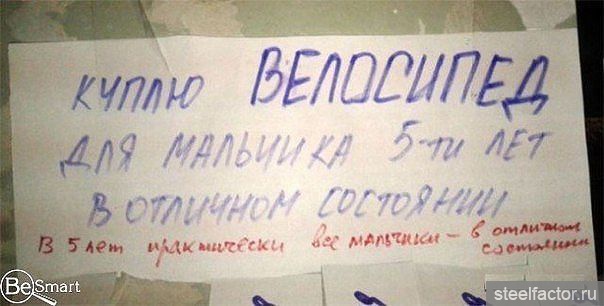 КУПЛЮ ВЕЛОСИПЕД
ДЛЯ МАЛЬЧИКА 5-ти ЛЕТ
В ОТЛИЧНОМ СОСТОЯНИИ
В 5 лет практически все мальчики – в отличном
состоянии
BeSmart
steelfactor.ru